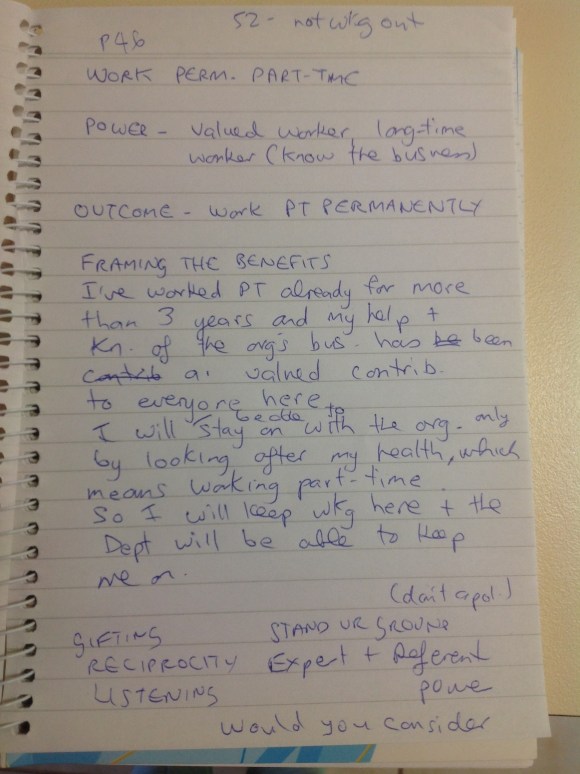 52 - not wkg out
P46
WORK PERM. PART-TIME
POWER - valued worker, long-time
worker (know the business)
OUTCOME - work PT PERMANENTLY
FRAMING THE BENEFITS
I've worked PT already for more
than 3 years and my help +
kn. of the org's bus. has be been
contrib a. valued contrib.
to everyone here
be able to
I will stay on with the org. only
by looking after my health, which
means working part-time.
So I will keep wkg here + the
Dept will be able to keep
me on.
(don't apol.)
GIFTING STAND UR GROUND
RECIPROCITY Expert + Referent
LISTENING power
Would you consider